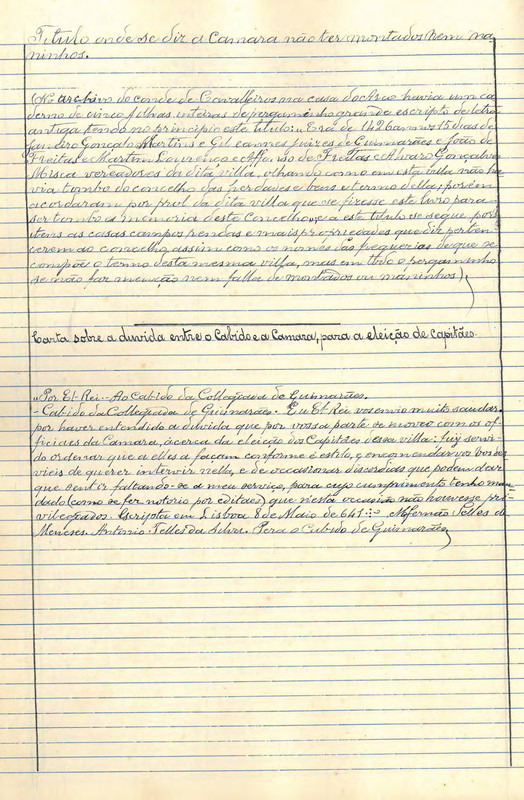 Titulo onde se diz a Camara não ter montados nem ma
ninhos.
(No archivo do conde de Cavalleiros na casa do Arco havia um ca
derno de cinco folhas inteiras de pergaminho grande escripto de letra
antiga tendo no principio este titulo: "Era de 1426 annos 15 dias de
Janeiro Gonçalo Martins e Gil cannes juizes de Guimarães e João de
Freitas e Martim Lourenço e Affonso de Freitas e Alvaro Gonçalves
Misca vereadores da dita villa, olhando como em esta villa não ha
via tombo do concelho das herdades e bens e termo della; porém
acordaram por prol da dita villa que se fizesse este livro para
ser tombo e memoria deste Concelho; e a este titulo se segue por
itens as casas campos rendas e mais propriedades que diz perten
cerem ao concelho, assim como os nomes das freguezias de que se
compõe o termo desta mesma villa, mas em todo o pergaminho
se não faz menção nem falla de montados ou maninhos)
Carta sobre a duvida entre o Cabido e a Camara, para a eleição de capitães.
"Por El-Rei - Ao Cabido da Collegiada de Guimarães.
- Cabido da Collegiada de Guimarães. Eu El-Rei vos envio muito saudar.
por haver entendido a duvida que por vossa parte se moveo com os of-
ficiaes da Camara, ácerca da eleição dos Capitães dessa villa: fui servi-
do ordenar que a elles a façam conforme é estilo, e encomendarvos hos de
vieis de querer intervir nella, e de occasionar discordias que podem dar
que sentir faltando-se a meu serviço, para cujo cumprimento tenho man-
dado (como se fez notorio por editaes) que n'esta occasião não houvesse pri-
vilegiados. Escripta em Lisboa 8 de Maio de 641 Fernão Telles de
Menezes. Antonio Telles da Silva. Pera o Cabido de Guimarães